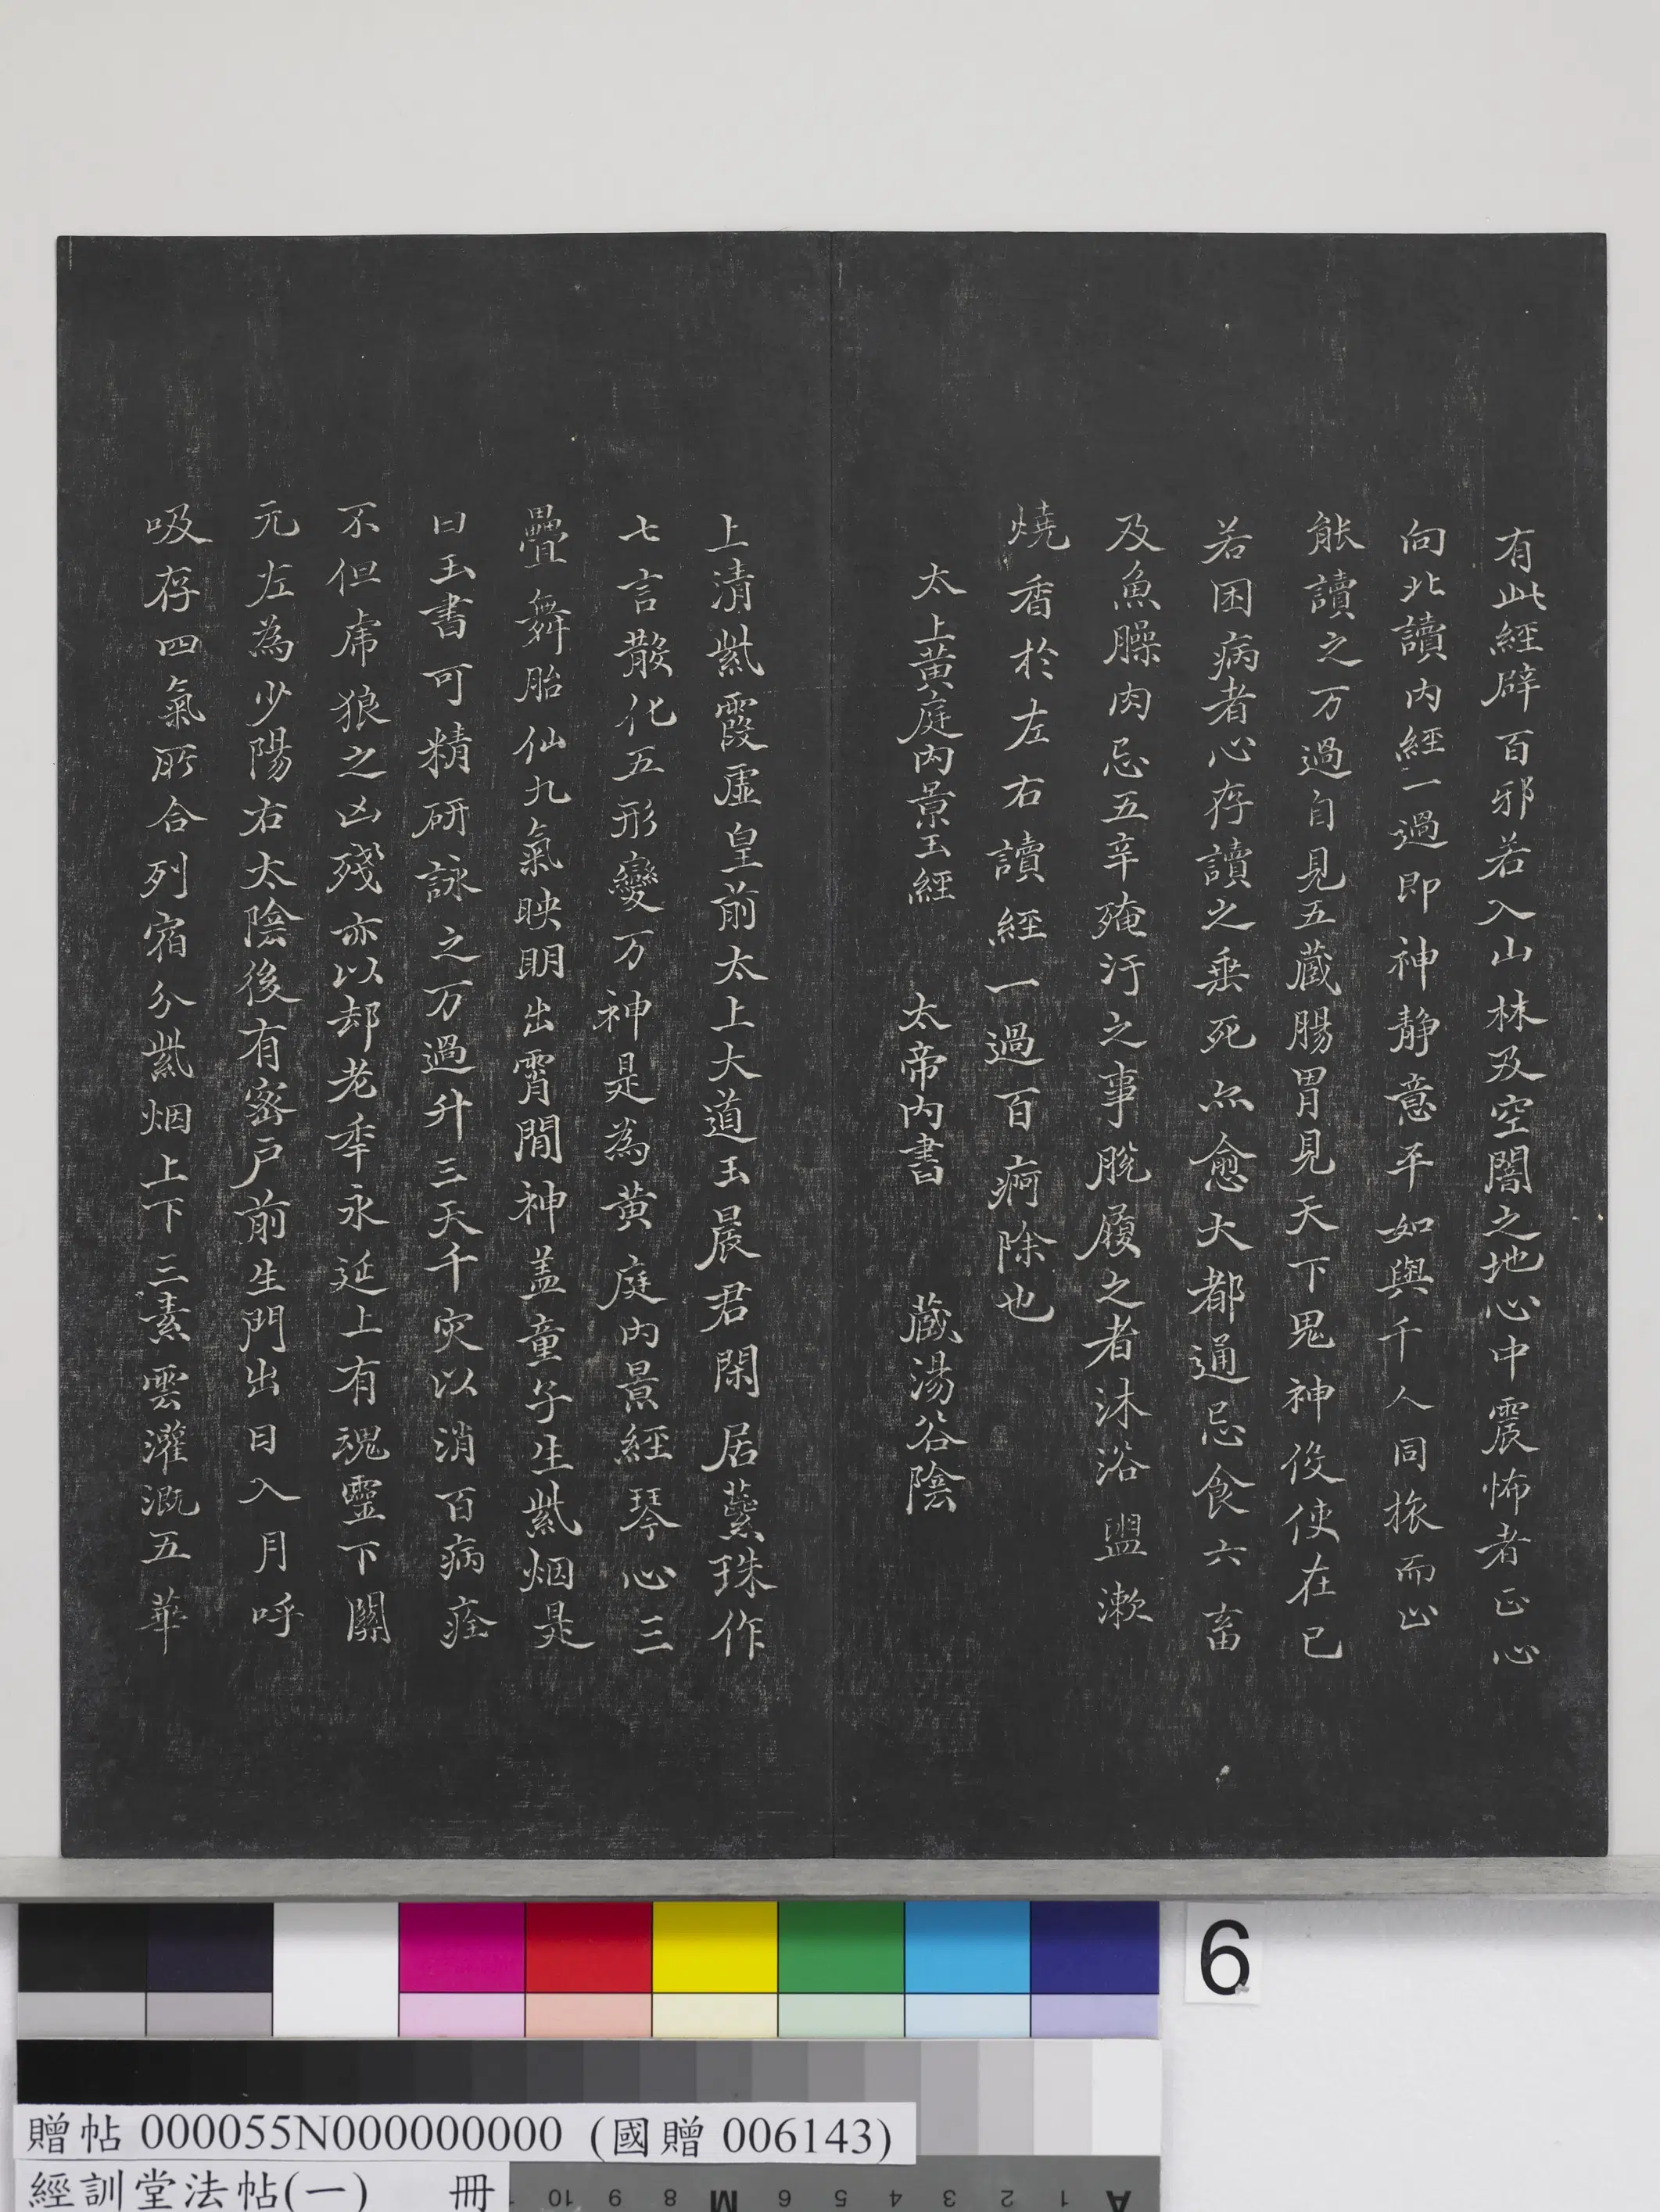 有此經辟百邪若入山林及空闇之地心中震怖者正心
向北讀內經一過即神靜意平如與千人同旅而止
能讀之万過自見五藏腸胃見天下鬼神役使在己
若困病者心存讀之垂死亦愈大都通忌食六畜
及魚臊肉忌五辛殗汙之事脫履之者沐浴盥漱
燒香於左右讀經一過百痾除也
太上黃庭內景玉經 太帝內書 藏湯谷陰
上清紫霞虛皇前太上大道玉晨君閑居蘂珠作
七言散化五形變万神是為黃庭內景經琴心三
疊舞胎仙九氣映明出霄閒神盖童子生紫烟是
曰玉書可精研詠之万過升三天千灾以消百病痊
不但虎狼之凶殘亦以却老年永延上有魂靈下關
元左為少陽右太陰後有密戶前生門出日入月呼
吸存四氣所合列宿分紫烟上下三素雲灌溉五華
6
贈帖 000055N000000000 (國贈 006143)
經訓堂法帖(一) 冊
10 9 8 M 6 5 4 3 2 1 A